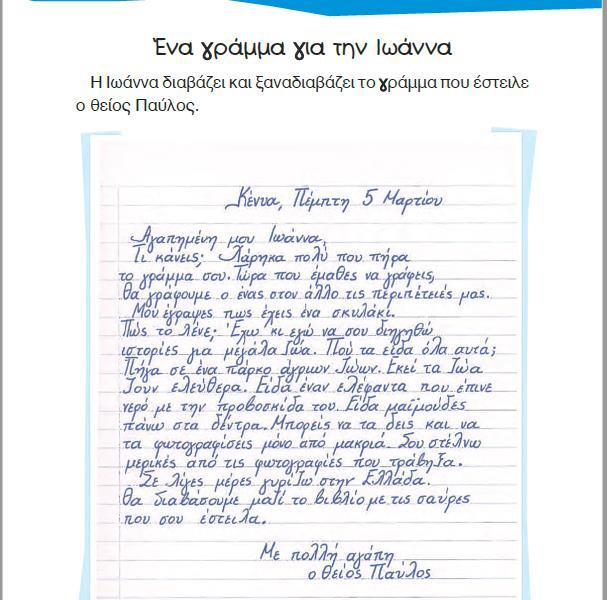 Ένα γράμμα για την Ιωάννα
Η Ιωάννα διαβάζει και ξαναδιαβάζει το γράμμα που έστειλε
ο θείος Παύλος.
Κένυα, Πέμπτη 5 Μαρτίου
Αγαπημένη μου Ιωάννα,
Τι κάνεις; Χάρηκα πολύ που πήρα
το γράμμα σου. Τώρα που έμαθες να γράφεις,
θα γράφουμε ο ένας στον άλλο τις περιπέτειές μας.
Μου έγραψες πως έχεις ένα σκυλάκι.
Πώς το λένε; Έχω κι εγώ να σου διηγηθώ
ιστορίες για μεγάλα ζώα. Πού τα είδα όλα αυτά;
Πήγα σε ένα πάρκο άγριων ζώων. Εκεί τα ζώα
ζουν ελεύθερα. Είδα έναν ελέφαντα που έπινε
νερό με την προβοσκίδα του. Είδα μαϊμούδες
πάνω στα δέντρα. Μπορείς να τα δεις και να
τα φωτογραφίσεις μόνο από μακριά. Σου στέλνω
μερικές από τις φωτογραφίες που τράβηξα.
Σε λίγες μέρες γυρίζω στην Ελλάδα.
Θα διαβάσουμε μαζί το βιβλίο με τις σαύρες
που σου έστειλα.
Με πολλή αγάπη
ο θείος Παύλος